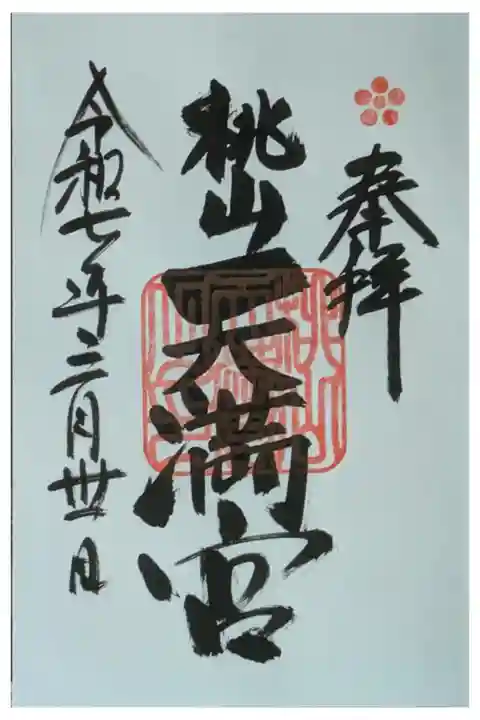 奉拝
桃山天満宮
令和七年三月卅一日